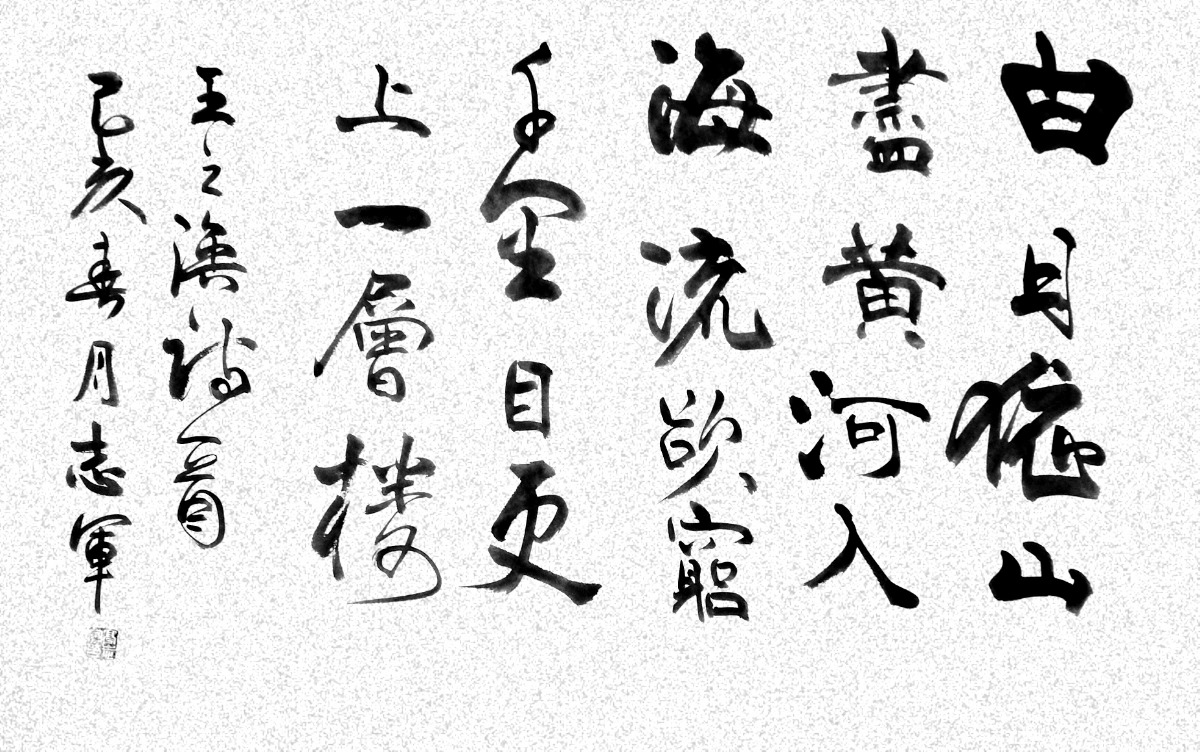 白日依山
盡黄河入
海流欲窮
千里目更
上一層樓
王之渙詩一首
己亥春月志軍